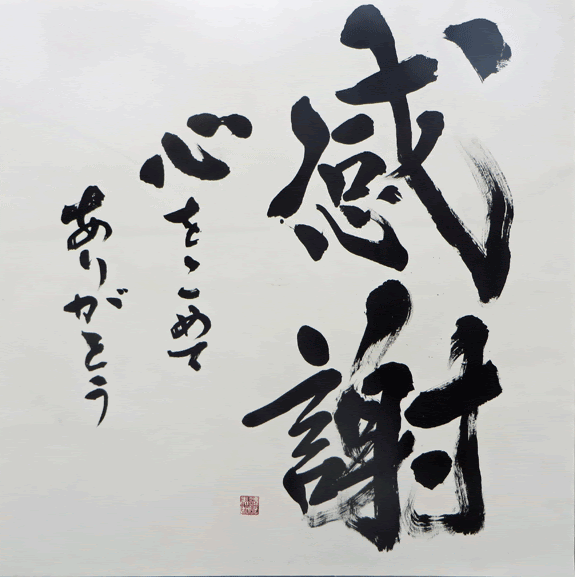 感謝
心をこめて
ありがとう